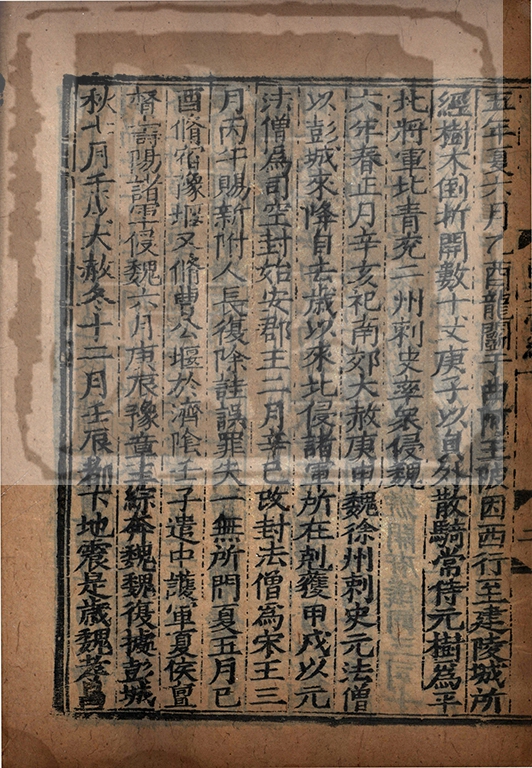 五年夏六月乙酉龍鬬于曲阿王陂因西行至建陵城所
經樹木倒折開數十丈庚子以員外散騎常侍元樹為平
北將軍北青兖二州刺史率衆侵魏
六年春正月辛亥祀南郊大赦庚申魏徐州刺史元法僧
以彭城來降自去歲以來北侵諸軍所在剋獲甲戌以元
法僧為司空封始安郡王二月辛巳改封法僧為宋王三
月丙午賜新附人長復除詿誤罪失一無所問夏五月己
酉脩宿豫堰又脩曹公堰於濟陰壬子遣中護軍夏侯亶
督壽陽諸軍侵魏六月庚辰豫章王綜奔魏魏復據彭城
秋七月壬戌大赦冬十二月壬辰都下地震是歲魏孝昌